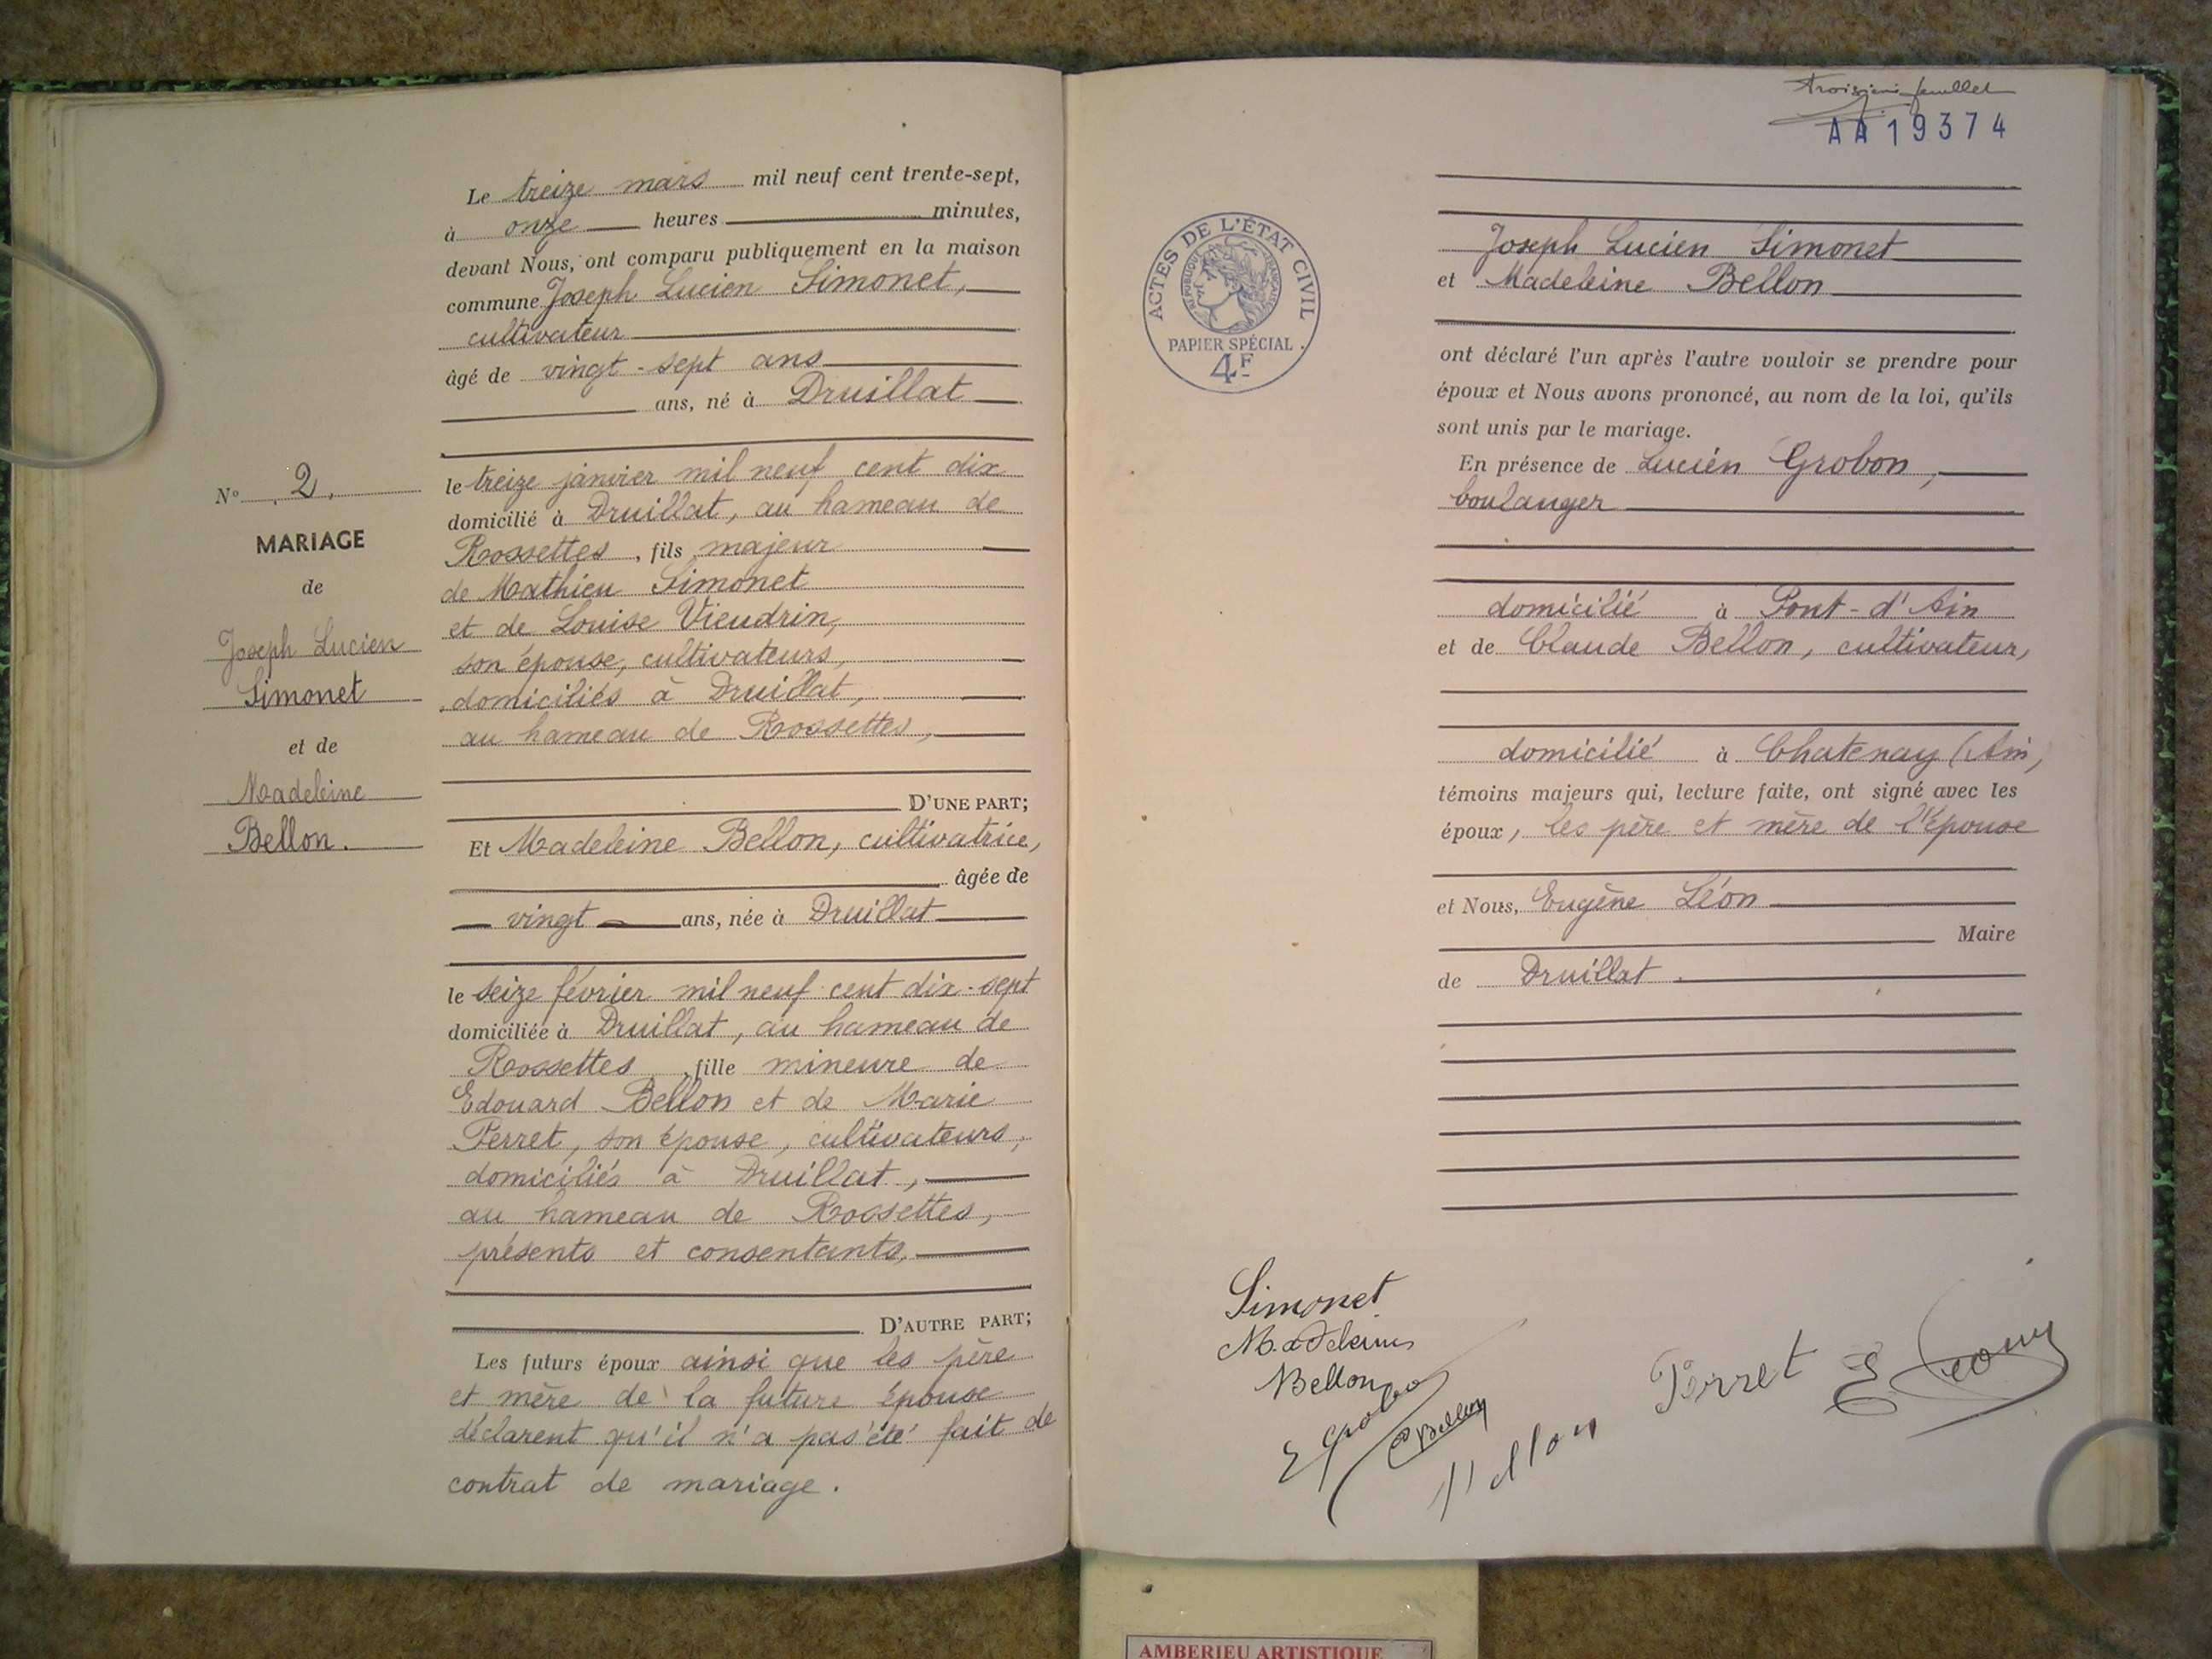 Le treize mars mil neuf cent trente-sept,
à onze heures minutes,
devant Nous, ont comparu publiquement en la maison
commune Joseph Lucien Simonet,
cultivateur
âgé de vingt-sept ans
ans, né à Druillat
le treize janvier mil neuf cent dix
domicilié à Druillat, au hameau de
Rossettes, fils majeur
de Mathieu Simonet
et de Louise Vieudrin,
son épouse, cultivateurs,
domiciliés à Druillat,
au hameau de Rossettes,
D'UNE PART;
Et Madeleine Bellon, cultivatrice,
âgée de
vingt ans, née à Druillat
le seize février mil neuf cent dix-sept
domiciliée à Druillat, au hameau de
Rossettes, fille mineure de
Edouard Bellon et de Marie
Perret, son épouse, cultivateurs,
domiciliés à Druillat,
au hameau de Rossettes,
présents et consentants,
D'AUTRE PART;
Les futurs époux ainsi que les père
et mère de la future épouse
déclarent qu'il n'a pas été fait de
contrat de mariage.
N° 2.
MARIAGE
de
Joseph Lucien
Simonet
et de
Madeleine
Bellon.
Troisième feuillet
AA 19374
ACTES DE L'ÉTAT CIVIL
RÉPUBLIQUE FRANÇAISE
PAPIER SPÉCIAL.
4F
Joseph Lucien Simonet
et Madeleine Bellon
ont déclaré l'un après l'autre vouloir se prendre pour
époux et Nous avons prononcé, au nom de la loi, qu'ils
sont unis par le mariage.
En présence de Lucien Grobon,
boulanger
domicilié à Pont-d'Ain
et de Claude Bellon, cultivateur,
domicilié à Chatenay (Ain)
témoins majeurs qui, lecture faite, ont signé avec les
époux, les père et mère de l'épouse
et Nous, Eugène Léon
Maire
de Druillat.
Simonet
Madeleine
Bellon
Grobon
C Bellon
Bellon
Perret
E Leon
AMBERIEU ARTISTIQUE